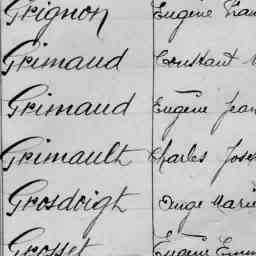 Grignon Eugène
Grimaud Constant
Grimaud Eugène Jean
Grimault Charles
Grosdoigt Ange Marie
Grosset Eugène